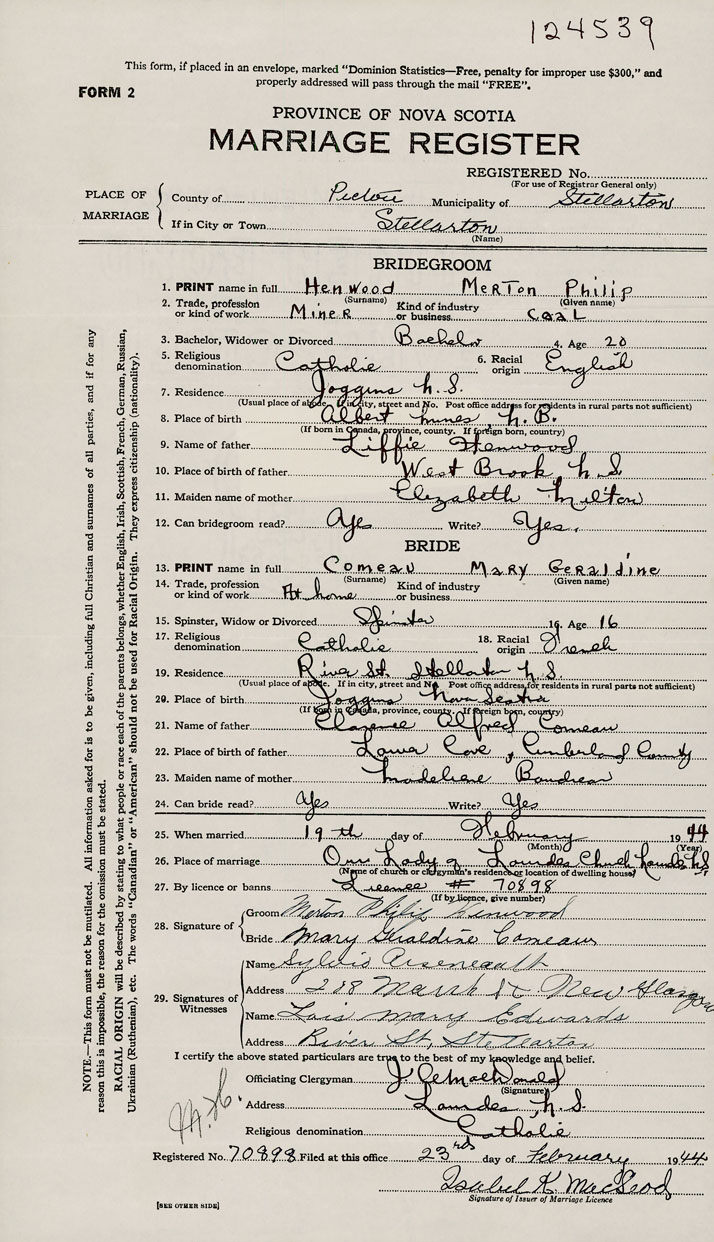 124539
This form, if placed in an envelope, marked "Dominion Statistics—Free, penalty for improper use $300," and
properly addressed will pass through the mail "FREE".
FORM 2
PROVINCE OF NOVA SCOTIA
MARRIAGE REGISTER
REGISTERED No.
(For use of Registrar General only)
PLACE OF MARRIAGE
County of Pictou Municipality of Stellarton
If in City or Town Stellarton
(Name)
BRIDEGROOM
1. PRINT name in full Henwood Merton Philip
(Surname) (Given name)
2. Trade, profession or kind of work Miner Kind of industry or business Coal
3. Bachelor, Widower or Divorced Bachelor 4. Age 20
5. Religious denomination Catholic 6. Racial origin English
7. Residence Joggins N.S.
(Usual place of abode. If in city, street and No. Post office address for residents in rural parts not sufficient)
8. Place of birth Albert Mines N.B.
(If born in Canada, province, county. If foreign born, country)
9. Name of father Liffie Henwood
10. Place of birth of father West Brook N.S
11. Maiden name of mother Elizabeth Milton
12. Can bridegroom read? Yes Write? Yes.
BRIDE
13. PRINT name in full Comeau Mary Geraldine
(Surname) (Given name)
14. Trade, profession or kind of work At home Kind of industry or business
15. Spinster, Widow or Divorced Spinster 16. Age 16
17. Religious denomination Catholic 18. Racial origin French
19. Residence River St. Stellarton N.S.
(Usual place of abode. If in city, street and No. Post office address for residents in rural parts not sufficient)
20. Place of birth Joggins Nova Scotia
(If born in Canada, province, county. If foreign born, country)
21. Name of father Clarence Alfred Comeau
22. Place of birth of father Lower Cove, Cumberland County
23. Maiden name of mother Madeliene Boudreau
24. Can bride read? Yes Write? Yes
25. When married 19th day of February 1944
(Month) (Year)
26. Place of marriage Our Lady of Lourdes Church Lourdes N.S.
(Name of church or clergyman's residence or location of dwelling house)
27. By licence or banns License # 70898
(If by licence, give number)
28. Signature of
Groom Merton Philip Henwood
Bride Mary Geraldine Comeau
29. Signatures of Witnesses
Name Sylvio Arseneault
Address 228 Marsh St New Glasgow
Name Lois Mary Edwards
Address River St, Stellarton
I certify the above stated particulars are true to the best of my knowledge and belief.
Officiating Clergyman J C MacDonald
(Signature)
Address Lourdes N.S.
Religious denomination Catholic
Registered No. 70898 Filed at this office 23rd day of February 1944
Isabel K. MacLeod
Signature of Issuer of Marriage Licence
[SEE OTHER SIDE]
NOTE.—This form must not be mutilated. All information asked for is to be given, including full Christian and surnames of all parties, and if for any
reason this is impossible, the reason for the omission must be stated.
RACIAL ORIGIN will be described by stating to what people or race each of the parents belongs, whether English, Irish, Scottish, French, German, Russian,
Ukrainian (Ruthenian), etc. The words "Canadian" or "American" should not be used for Racial Origin. They express citizenship (nationality).